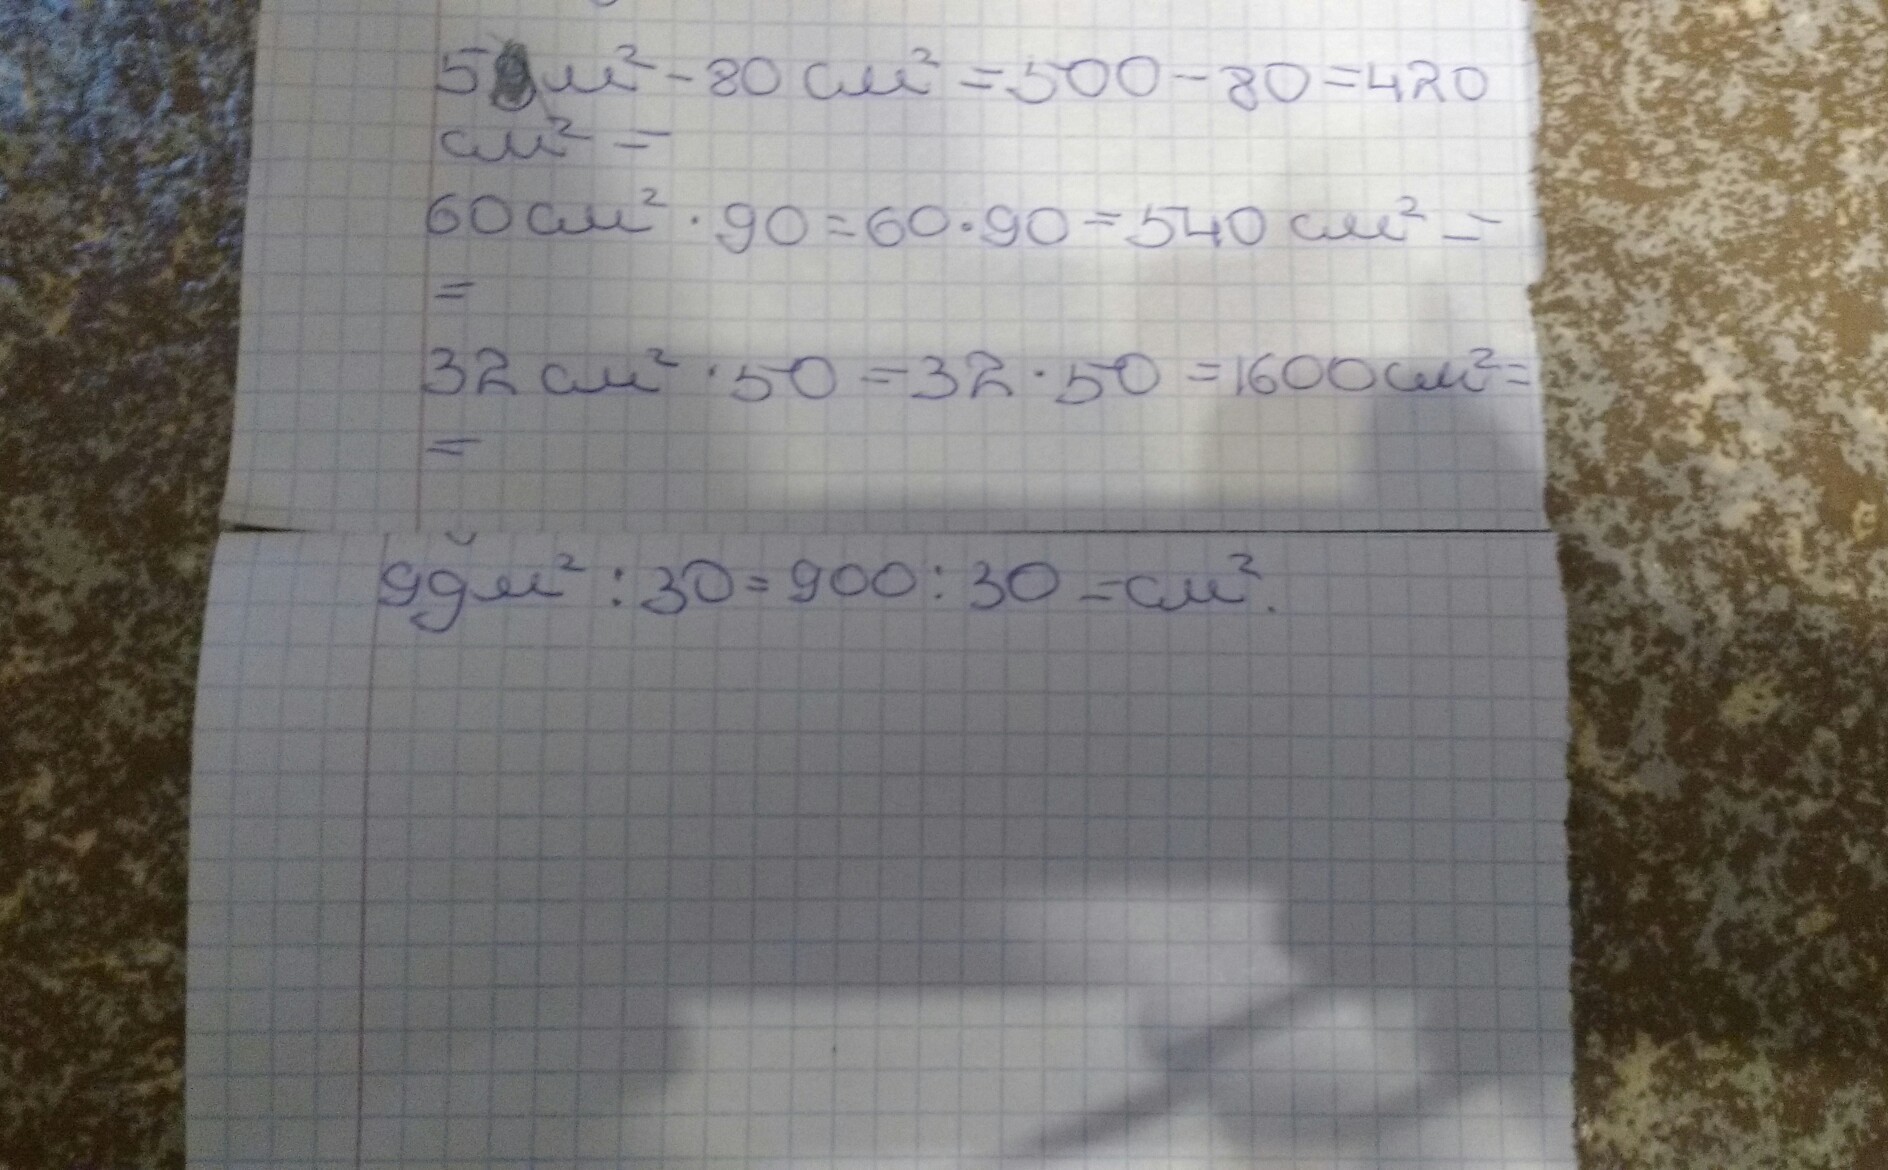 5дм² - 80 см² = 500 - 80 = 420
см² =
60 см² · 90 = 60 · 90 = 540 см² =
=
32 см² · 50 = 32 · 50 = 1600 см² =
=
9дм² : 30 = 900 : 30 = см².